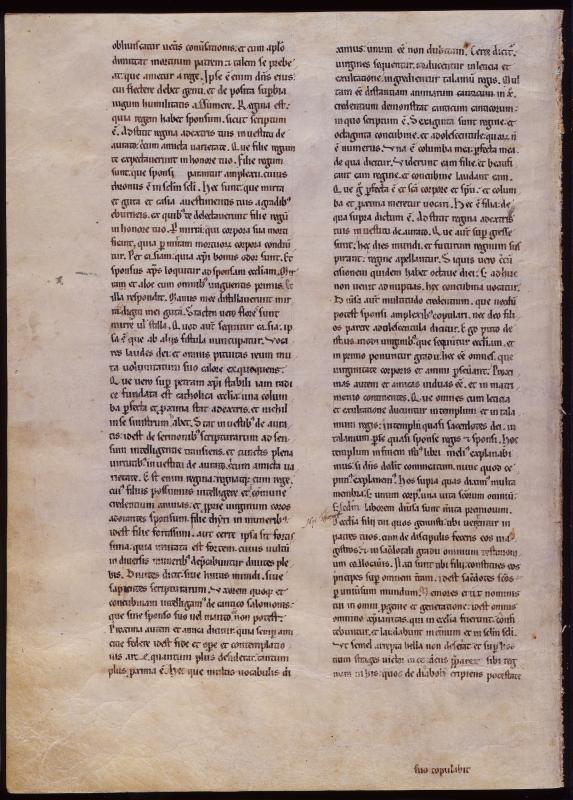 obliviscatur ueteris conuersationis. et cum apl̄o
dimittat mortuum patrem. 7 talem se prebe
at. que ametur a rege. Ipse ē enim dn̄s eius.
cui flectere debet genu. et de posita sup̄bia
iugum humilitatis assumere. Regina est.
quia regem habet sponsum. sicut scriptum
ē. Adstitit regina adextris tuis in uestitu de
aurato. cum amicta uarietate. Que filie regum
te
in honore tuo. Filie regum
sunt. que sponsi amplexu. cuius
thronus ē in sc̄l'm sc̄l'i. Hec sunt. que mirra
et guta et casia auestimentis tuis agradib;
eburneis. et quib; te delectauerunt filie regū
in honore tuo. Per mirra. qui corpora sua morti
ficant. quia per mirram mortuorum corpora condiū
tur. Per casiam. quia xp̄i bonus odor sunt. Et
sponsus xp̄s loquitur ad sponsam ecclīam. Mir
ram et aloe cum omnib; unguentis primis. et
illa respondit. Manus mee distillauerunt mir
ram digiti mei guta. Stacten uero flore sunt
mirre ul' stilla. Quod aut̄ sequitur casia. ip
sa ē que ab aliis fistula nuncupatur. Voca
res laudes dei. et omnis pituitas reum mu
ta uoluntatum suo calore excoquens.
Que uero supra petram xp̄i stabili iam radi
ce fundata est catholica ecclīa. una colum
ba perfecta et proxima stat adextris. et nichil
in se sinistrum habet. Stat in uestitu de aura
to. idest de sermonib; scripturarum ad sen
sum intelligentie transiens. et cunctis plena
uirtutib; in uestitu de aurato. cum amicta ua
rietate. Est enim regina. regnatque cum rege.
cui' filias possumus intelligere et comune
credentium animas. et proprie uirginum coros
adorantes sponsum. filie thyri in munerib;.
idest filie fortissimi. aut certe ipsa sit fortis
sima. quia imitata est fortem. cuius uultū
in diuersis munerib; deprecabuntur diuites ple
bis. Diuites dicit. siue huius mundi. siue
sapientes scripturarum. Vxorem quoque et
concubinam intelligam' de cantico salomonis.
que sine sponso suo uel marito non potest.
Proxima autem et amica dicitur. quia semper ami
cicie federe idest fide et spe et contemplatio
nis arce. quantum plus desiderat. tantum
plus proxima ē. Hec que multis uocabulis di
ximus. unum eē non dubitam'. Certe dicit.
uirgines sequentur. 7 aducentur in leticia et
exultatione. ingredientur talamū regis. Mul
tam eē distantiam animarum canticum in xp̄o
credentium demonstrat canticum canticorum.
in quo scriptum ē. Sexaginta sunt regine. et
octuaginta concubine. et adolescentule. quarum n̄
ē numerus. Una ē columba mea. perfecta mea.
de qua dicitur. Viderunt eam filie. et beatifi
cant eam regine. et concubine laudant eam.
Que g̊ perfecta ē et sc̄a corpore et spū. et colum
ba et proxima meretur uocari. Hec ē filia. de
qua supra dictum ē. Adstitit regina adextris
tuis in uestitu de aurato. Que aut̄ super gresse
sunt. hec dies mundi. et futurum regnum sus
pirant. regine apellantur. Siquis uero
sionem quidem habet octaue diei. sed adhuc
non uenit ad nuptias. hec concubina uocatur.
Diuersa aut̄ multitudo credentium. que necdū
potest sponsi amplexib; copulari. nec deo fili
os parere adolescentula dicitur. Ego puto de
istis. modo uirginib; que sequuntur ecclīam. et
in primo ponuntur gradu. hec eē omnes. que
uirginitate corporis et animi perseuerant. Proxi
mas autem et amicas uiduas eē. et in matri
monio continentes. Que omnes cum leticia
et exultatione ducuntur in templum et in tala
mum regis. in templi quasi sacerdotes dei. in
talamum. ipse quasi sponse regis 7 sponsi. Hoc
templum in finem isti' libri melius explanabi
mus. si dn̄s dolit commeatum. nunc quod ce
pim' explanem'. Hos supra quas diximus multa
membra. sed unum corpus. una uita seorum omnium.
sed secundum laborem diuersa sunt merita premiorum.
Ecclīa filii tui quos genuisti. tibi uertentur in
patres tuos. cum de discipulis feceris eos ma
gistros. 7 in sacerdotali gradu omnium testimoni
um collocaueris. Nati sunt tibi filii. constitues eos
principes super omnem terram. idest sacerdotes sc̄os
per uniuersum mundum. Memores erunt nominis
tui in omni progenie et generatione. idest omnes
omnino xp̄ianitas. qui in ecclīa fuerunt confi
tebuntur. et laudabunt in eternum et in sc̄l'm sc̄l'i.
et semel arrepta bella non deserat. et super hos
tium strages uictor incedens preparet sibi reg
num in his. quos de diaboli eripiens potestate
suo copulabit